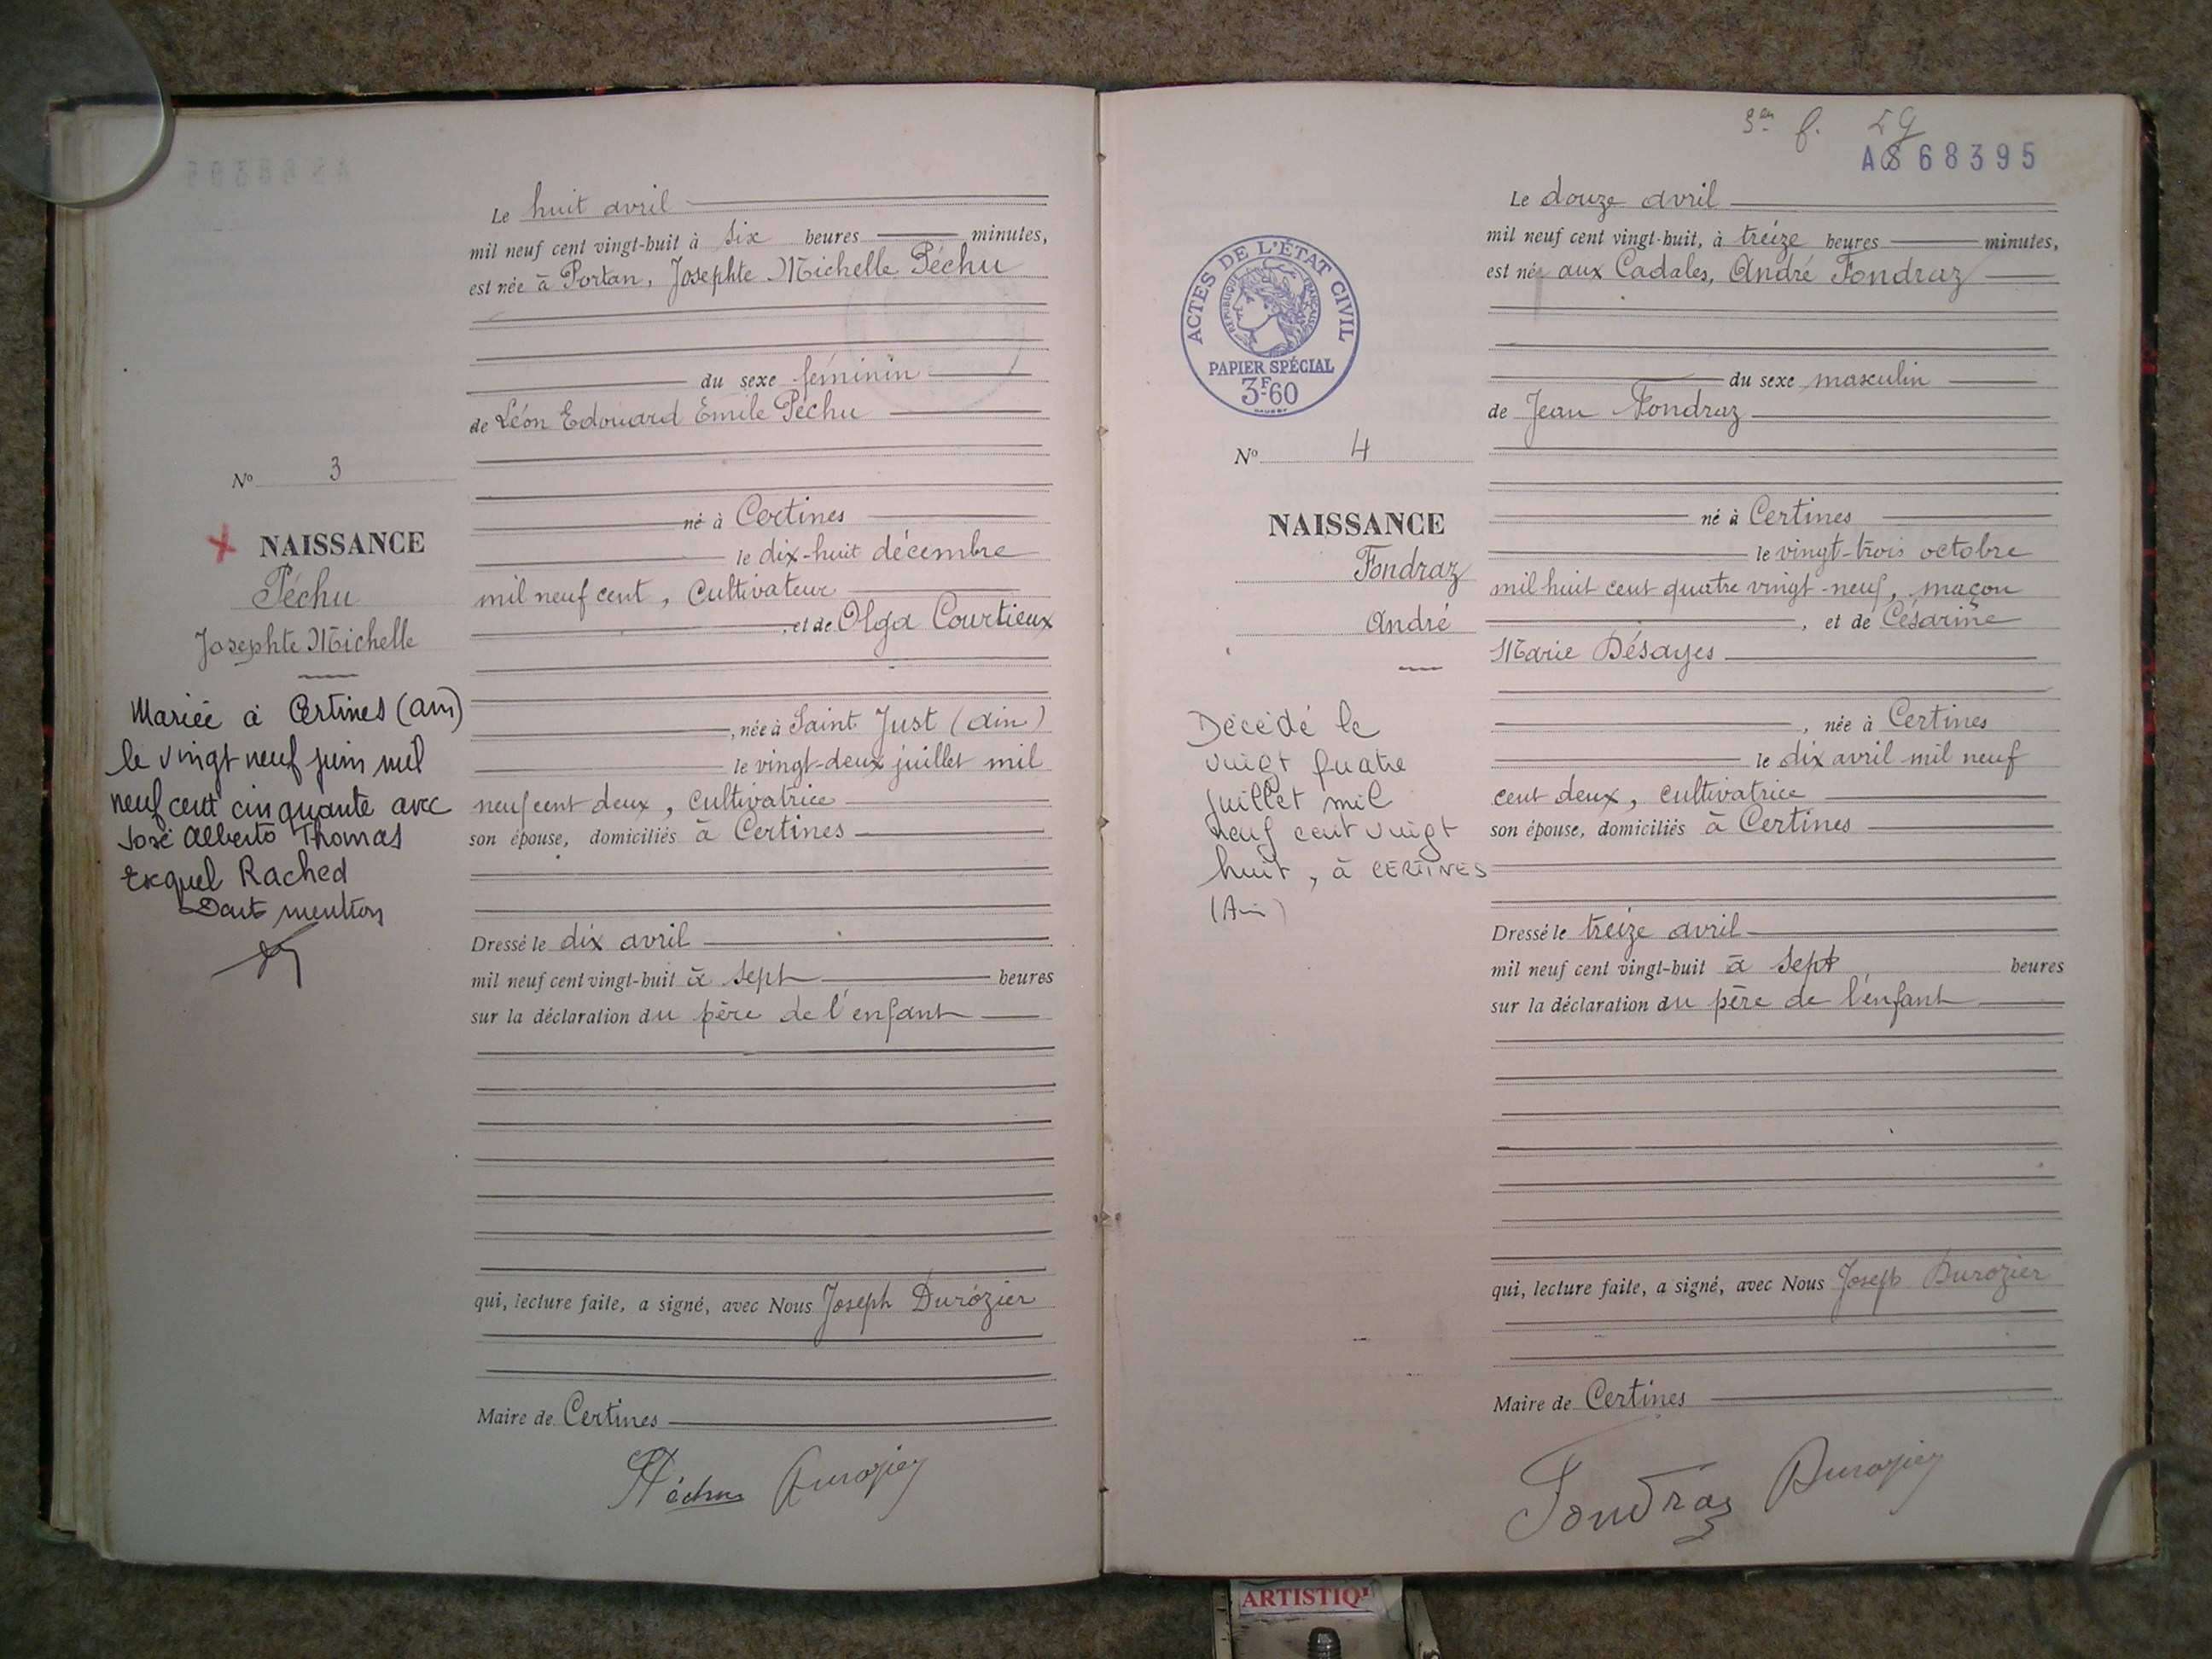 Le huit avril
mil neuf cent vingt-huit à six heures minutes,
est née à Portan, Josephte Michelle Péchu
du sexe féminin
de Léon Edouard Emile Péchu
N° 3
NAISSANCE
Péchu
Josephte Michelle
né à Certines
le dix-huit décembre
mil neuf cent, Cultivateur
, et de Olga Courtieux
, née à Saint Just (ain)
le vingt-deux juillet mil
neuf cent deux, cultivatrice
son épouse, domiciliés à Certines
Mariée à Certines (ain)
le vingt neuf juin mil
neuf cent cinquante avec
José Alberto Thomas
Exquel Rached
Dont mention
Dressé le dix avril
mil neuf cent vingt-huit à sept heures
sur la déclaration du père de l'enfant
qui, lecture faite, a signé, avec Nous Joseph Durozier
Maire de Certines
Péchu Durozier
AS 68395
Le douze avril
mil neuf cent vingt-huit, à treize heures minutes,
est né aux Cadales, André Fondraz
ACTES DE L'ÉTAT CIVIL
RÉPUBLIQUE FRANÇAISE
PAPIER SPÉCIAL
3F60
du sexe masculin
de Jean Fondraz
N° 4
NAISSANCE
Fondraz
André
né à Certines
le vingt-trois octobre
mil huit cent quatre vingt-neuf, maçon
, et de Césarine
Marie Désayes
, née à Certines
le dix avril mil neuf
cent deux, cultivatrice
son épouse, domiciliés à Certines
Décédé le
vingt quatre
juillet mil
neuf cent vingt
huit, à CERTINES
(Ain)
Dressé le treize avril
mil neuf cent vingt-huit à sept heures
sur la déclaration du père de l'enfant
qui, lecture faite, a signé, avec Nous Joseph Durozier
Maire de Certines
Fondraz Durozier
ARTISTIQ